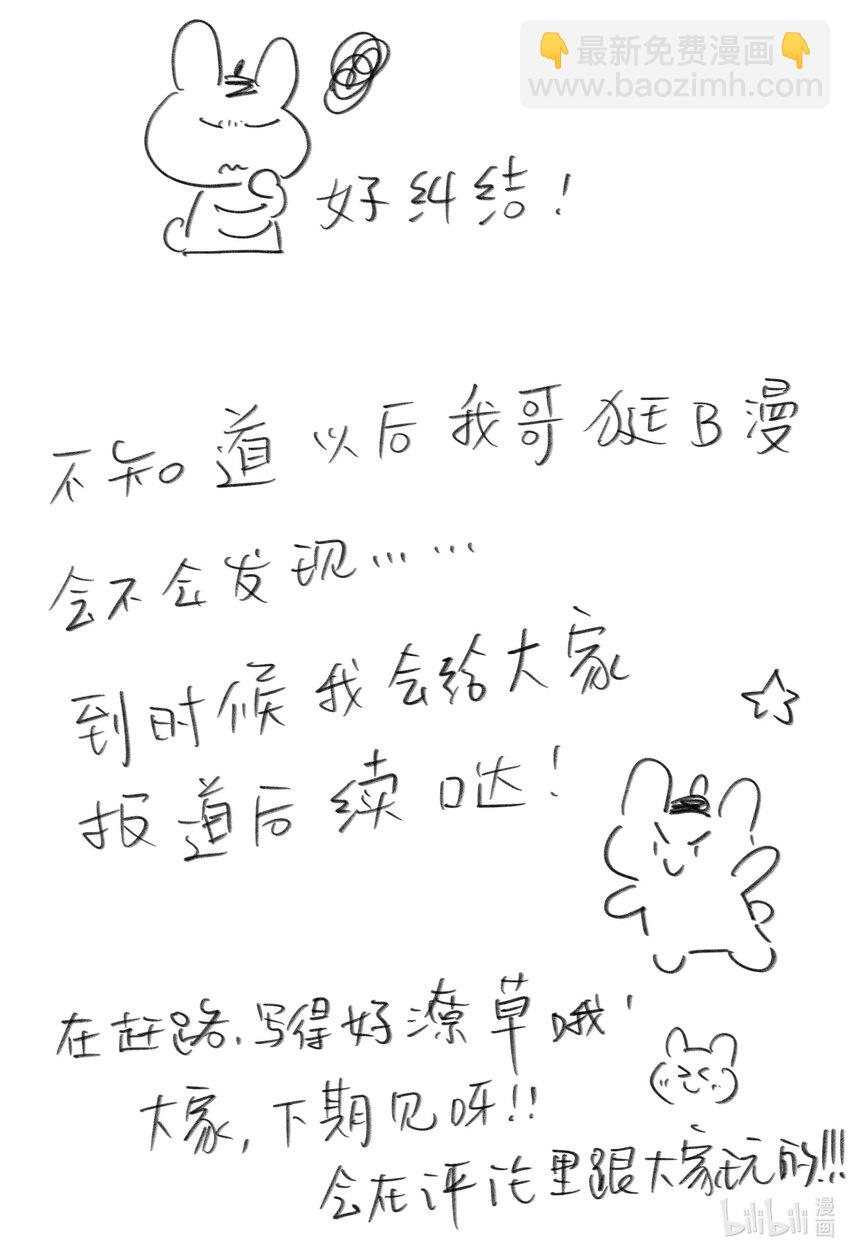 👇最新免费漫画👇
www.baozimh.com
好纠结!
不知道以后我哥逛B漫
会不会发现……
到时候我会给大家
报道后续哒!
在赶路,写得好潦草哦!
大家,下期见呀!!
会在评论里跟大家玩的!!!
bilibili 漫画